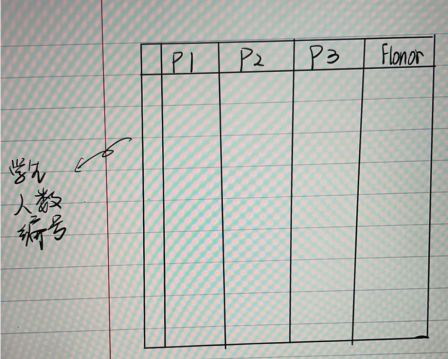 P1 P2 P3 Honor
学生
人数
编号